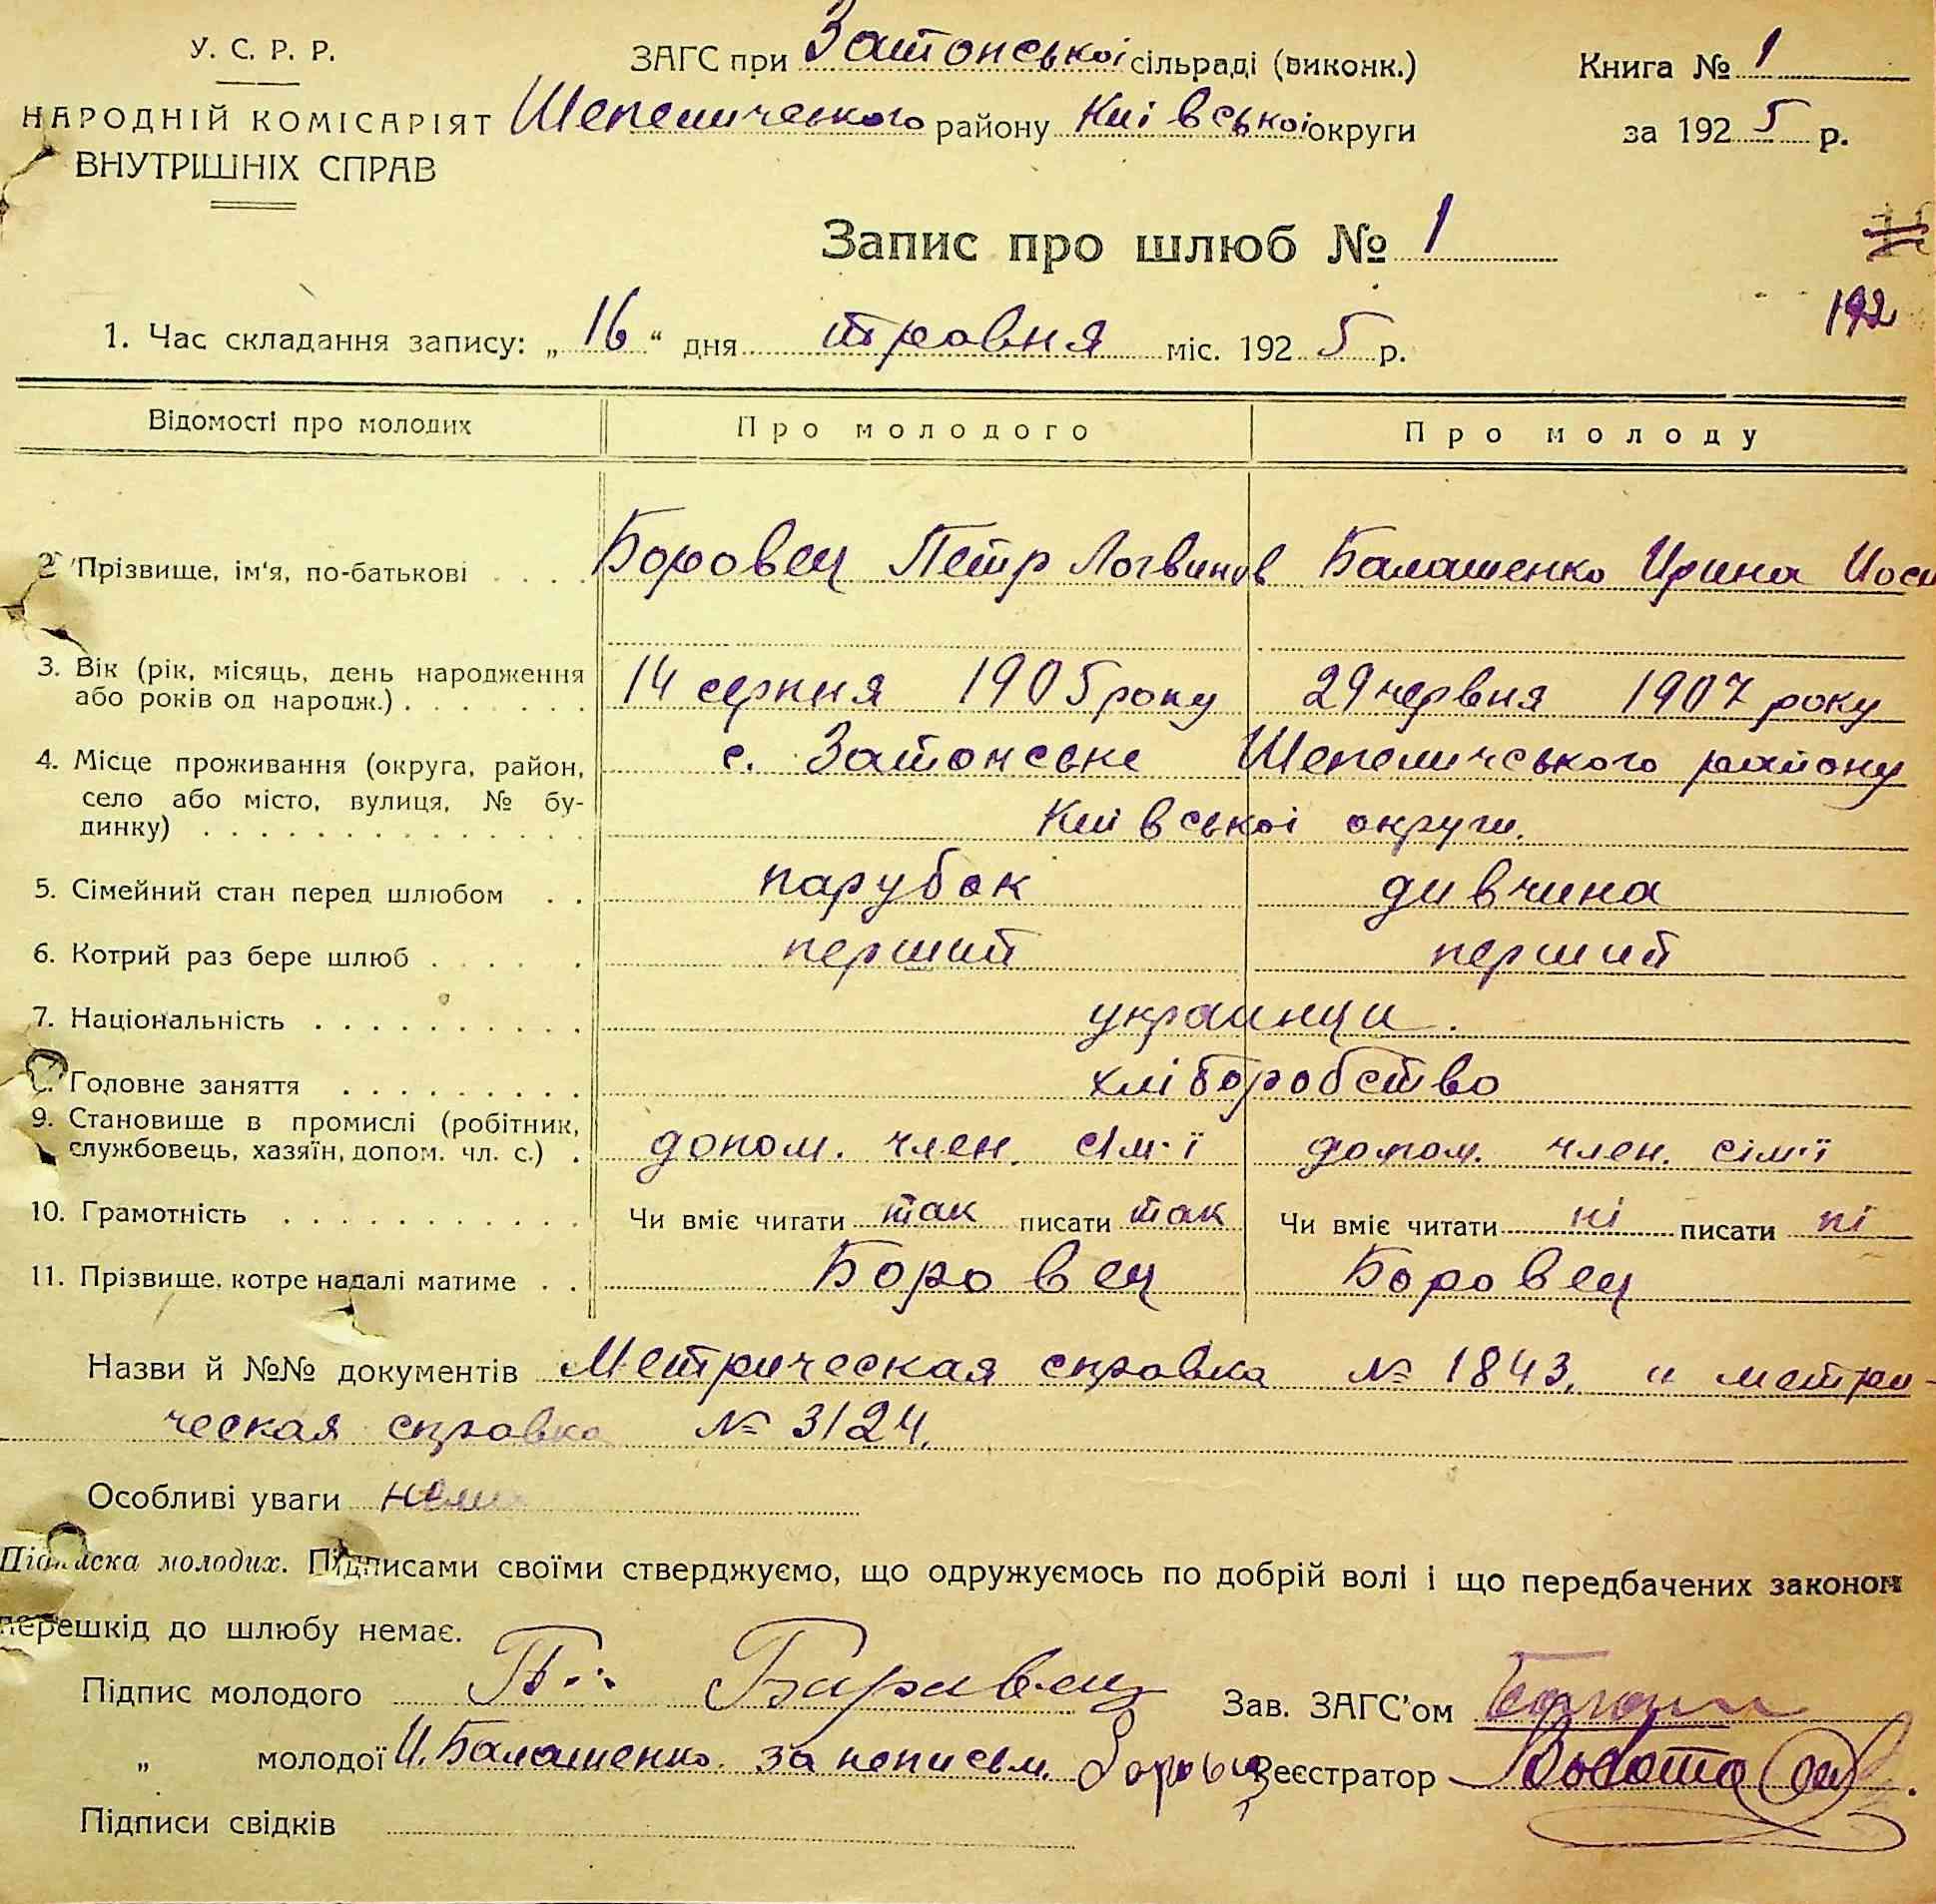 У. С. Р. Р.
ЗАГС при Затонськоі сільраді (виконк.)
Книга № 1
НАРОДНІЙ КОМІСАРІЯТ
ВНУТРІШНІХ СПРАВ
Шепеличеського району Киівськоі округи
за 1925 р.
Запис про шлюб № 1
192
1. Час складання запису: „16“ дня травня міс. 1925 р.
Відомості про молодих Про молодого Про молоду
2 Прізвище, ім'я, по-батькові . . . . Боровец Петр Логвинов Балашенко Ирина Иоси
3. Вік (рік, місяць, день народження
або років од народж.) . . . . . . . 14 серпня 1905 року 29 червня 1907 року
4. Місце проживання (округа, район, с. Затонське Шепеличського району
село або місто, вулиця, № бу-
динку) . . . . . . . . . . . . . . . Киівськоі округи.
5. Сімейний стан перед шлюбом . . парубок дивчина
6. Котрий раз бере шлюб . . . . . перший перший
7. Національність . . . . . . . . . . . украинци.
Головне заняття . . . . . . . . . . хліборобство
9. Становище в промислі (робітник,
службовець, хазяїн, допом. чл. с.) . допом. член. сім·ї допом. член. сім·ї
10. Грамотність . . . . . . . . . . . . Чи вміє читати так писати так Чи вміє читати ні писати ні
11. Прізвище, котре надалі матиме . . Боровец Боровец
Назви й №№ документів Метрическая справка № 1843, и метри-
ческая справка № 3124.
Особливі уваги нема
Підписка молодих. Підписами своїми стверджуємо, що одружуємось по добрій волі і що передбачених законом
перешкід до шлюбу немає.
Підпис молодого П. Баравец Зав. ЗАГС'ом
„ молодої И. Балашенко. за неписьм. Реєстратор
Підписи свідків